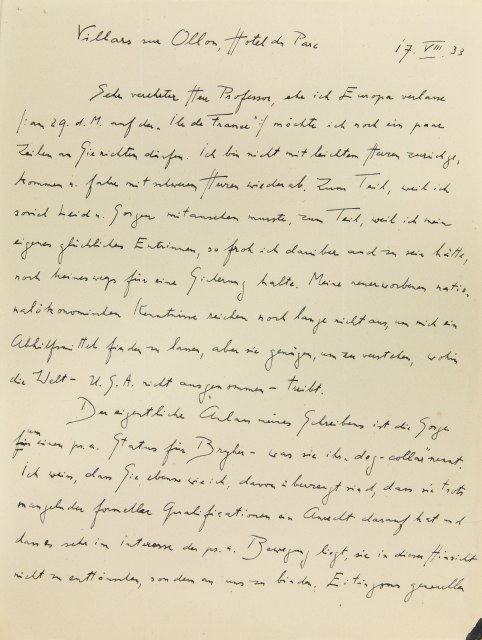 Villars sur Ollon, Hotel du Parc
17. VIII. 33
Sehr verehrter Herr Professor, ehe ich Europa verlasse
/: am 29. d. M. auf der „Ile de France" :/ möchte ich noch ein paar
Zeilen an Sie richten dürfen. Ich bin nicht mit leichtem Herzen zurückge,
kommen u. fahre mit schwerem Herzen wieder ab. Zum Teil, weil ich
soviel Leid u. Sorgen mitansehen musste, zum Teil, weil ich mein
eigenes glückliches Entrinnen, so froh ich darüber auch zu sein hätte,
noch keineswegs für eine Sicherung halte. Meine neuerworbenen natio,
nalökonomischen Kenntnisse reichen noch lange nicht aus, um mich ein
Abhilfsmittel finden zu lassen, aber sie genügen, um zu verstehen, wohin
die Welt - U. S. A. nicht ausgenommen - treibt.
Der eigentliche Anlass meines Schreibens ist die Sorge
um einen ps.a. Status für Bryher - was sie ihr „dog-collar" nennt.
Ich weiss, dass Sie ebenso wie ich, davon überzeugt sind, dass sie trotz
mangelnder formeller Qualificationen ein Anrecht darauf hat und
dass es sehr im Interesse der ps.a. Bewegung liegt, sie in dieser Hinsicht
nicht zu enttäuschen, sondern an uns zu binden. Eitingons genereller